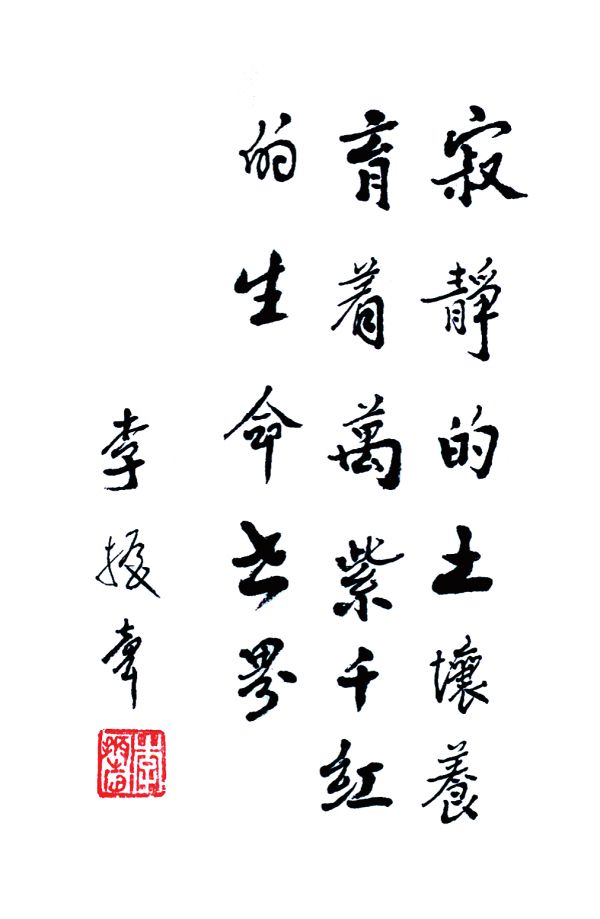 寂靜的土壤養
育着萬紫千紅
的生命世界
李振聲